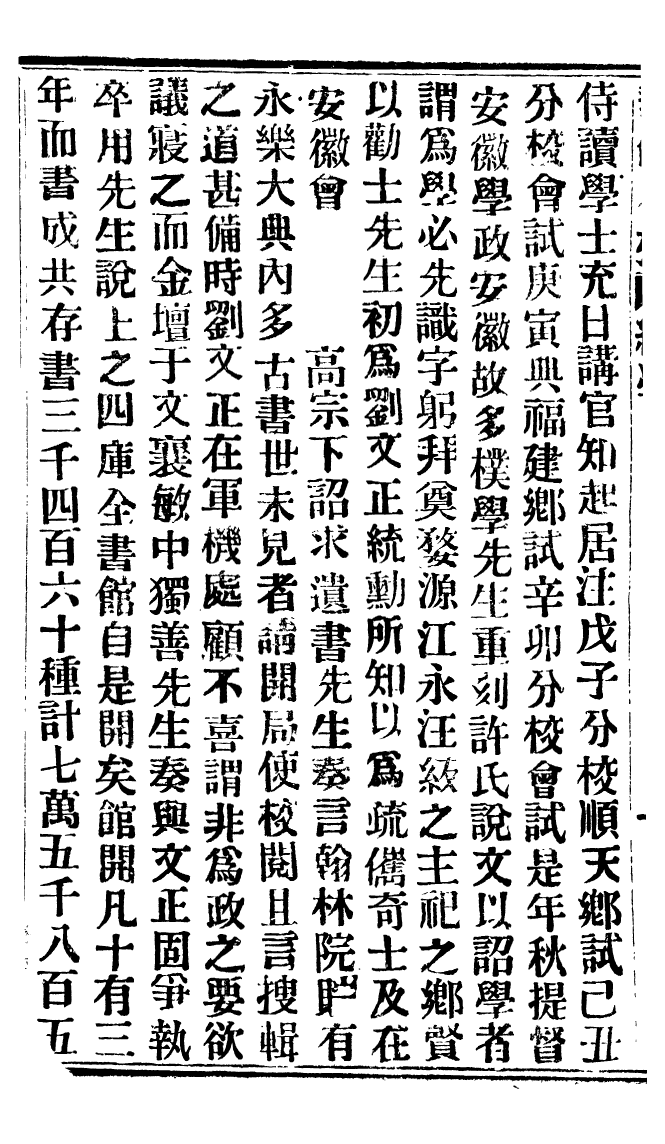 侍讀學士充日講官知起居注戊子分校順天鄉試己丑
分校會試庚寅典福建鄉試辛卯分校會試是年秋提督
安徽學政安徽故多樸學先生重刻許氏說文以詔學者
謂爲學必先識字躬拜奠婺源江永汪紱之主祀之鄉賢
以勸士先生初爲劉文正統勳所知以爲疏儁奇士及在
安徽會　　　高宗下詔求遺書先生奏言翰林院貯有
永樂大典內多古書世未見者請開局使校閱且言搜輯
之道甚備時劉文正在軍機處顧不喜謂非爲政之要欲
議寢之而金壇于文襄敏中獨善先生奏與文正固爭執
卒用先生說上之四庫全書館自是開矣館開凡十有三
年而書成共存書三千四百六十種計七萬五千八百五